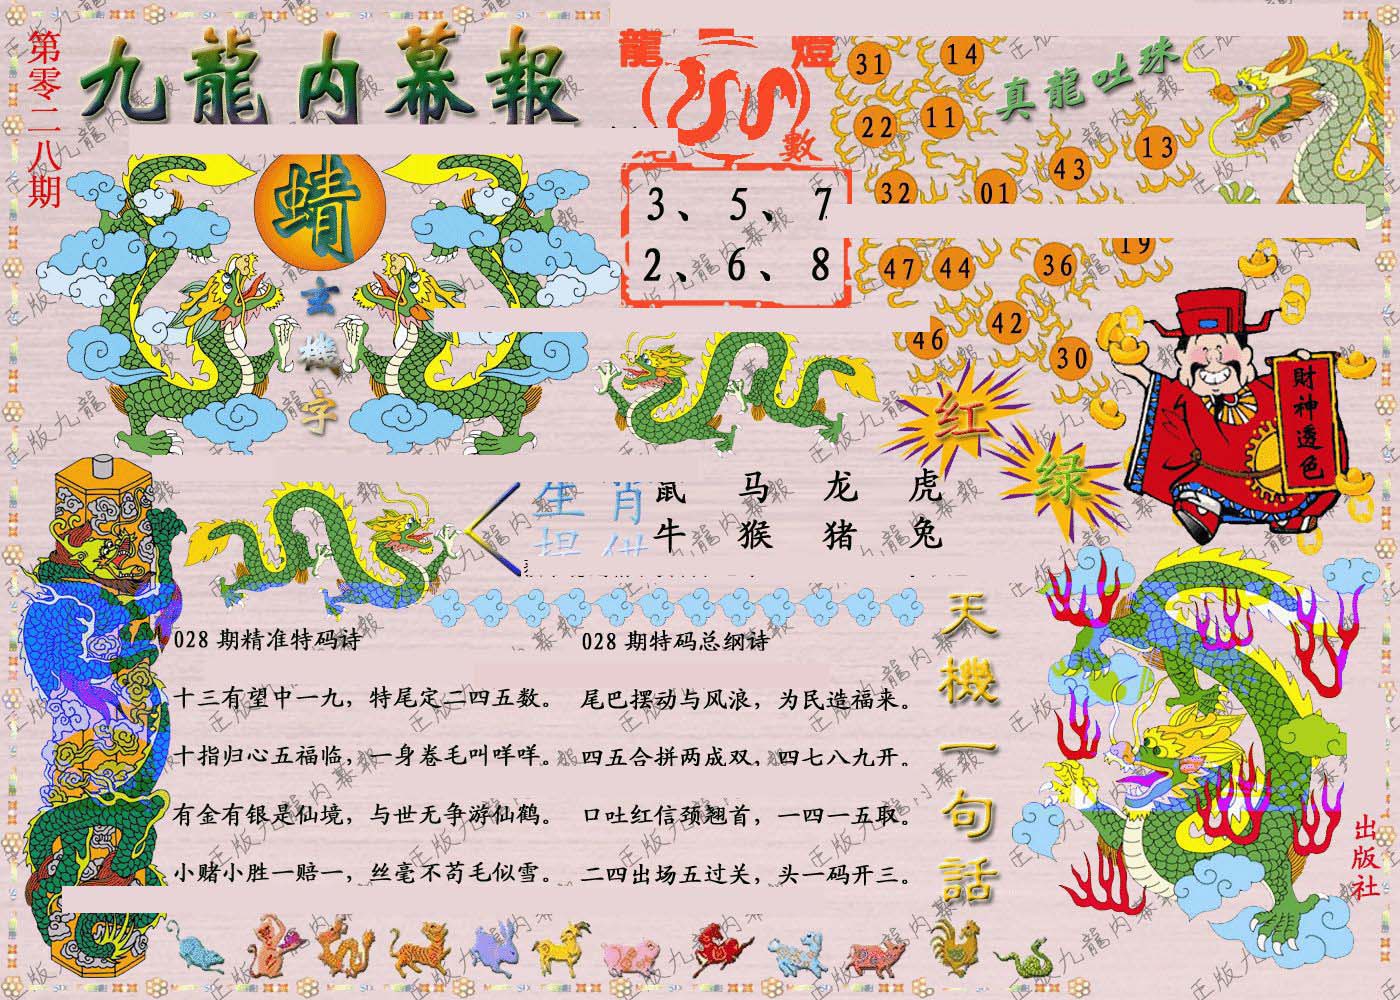 第零二八期
九龍内幕報
龍 燈
數
3、5、7
2、6、8
真龍吐珠
31 14
22 11
43 13
32 01
19
47 44 36
46 42
30
蜻
玄機字
红
绿
財神透色
生肖
鼠 马 龙 虎
牛 猴 猪 兔
天機一句話
028 期精准特码诗
十三有望中一九，特尾定二四五数。
十指归心五福临，一身卷毛叫咩咩。
有金有银是仙境，与世无争游仙鹤。
小赌小胜一赔一，丝毫不苟毛似雪。
028 期特码总纲诗
尾巴摆动与风浪，为民造福来。
四五合拼两成双，四七八九开。
口吐红信颈翘首，一四一五取。
二四出场五过关，头一码开三。
出版社
正版九龍内幕報